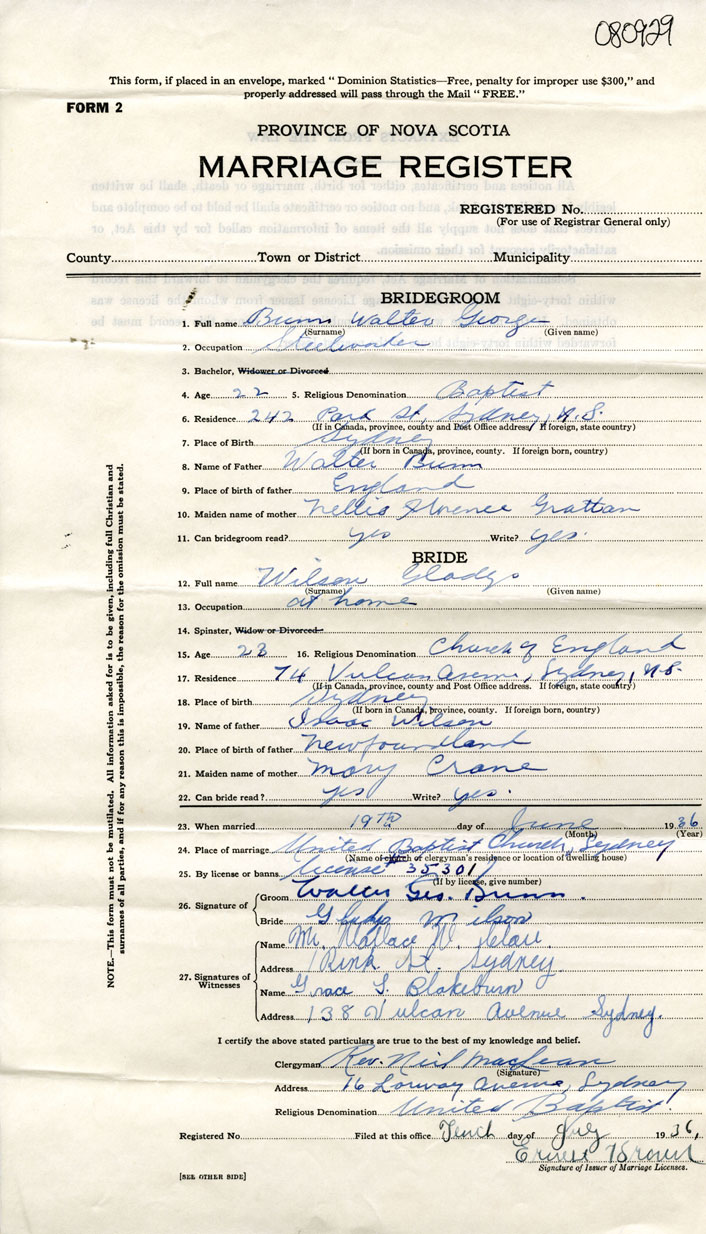 080929
This form, if placed in an envelope, marked " Dominion Statistics—Free, penalty for improper use $300," and
properly addressed will pass through the Mail " FREE."
FORM 2
PROVINCE OF NOVA SCOTIA
MARRIAGE REGISTER
REGISTERED No.
(For use of Registrar General only)
County Town or District Municipality
BRIDEGROOM
1. Full name Bunn Walter George
(Surname) (Given name)
2. Occupation Steelworker
3. Bachelor, Widower or Divorced
4. Age 22 5. Religious Denomination Baptist
6. Residence 242 Park St, Sydney, N.S.
(If in Canada, province, county and Post Office address. If foreign, state country)
7. Place of Birth Sydney
(If born in Canada, province, county. If foreign born, country)
8. Name of Father Walter Bunn
9. Place of birth of father England
10. Maiden name of mother Nellie Florence Grattan
11. Can bridegroom read? yes Write? yes.
BRIDE
12. Full name Wilson Gladys
(Surname) (Given name)
13. Occupation at home
14. Spinster, Widow or Divorced
15. Age 23 16. Religious Denomination Church of England
17. Residence 74 Vulcan Avenue, Sydney, N.S.
(If in Canada, province, county and Post Office address. If foreign, state country)
18. Place of birth Sydney
(If born in Canada, province, county. If foreign born, country)
19. Name of father Isaac Wilson
20. Place of birth of father Newfoundland
21. Maiden name of mother Mary Crane
22. Can bride read? yes Write? yes.
23. When married 19TH day of June 1936
(Month) (Year)
24. Place of marriage United Baptist Church, Sydney
(Name of church or clergyman's residence or location of dwelling house)
25. By license or banns License 35301
(If by license, give number)
26. Signature of
Groom Walter Geo. Bunn.
Bride Gladys Wilson
27. Signatures of Witnesses
Name Mr. Wallace W.
Address Rink St. Sydney
Name Grace S. Blakeburn
Address 138 Vulcan Avenue Sydney.
I certify the above stated particulars are true to the best of my knowledge and belief.
Clergyman Rev. Neil MacLean
(Signature)
Address 16 Lorway Avenue, Sydney
Religious Denomination United Baptist.
Registered No. Filed at this office Tenth day of July 1936,
Ernest Brown
Signature of Issuer of Marriage Licenses.
[SEE OTHER SIDE]
NOTE.—This form must not be mutilated. All information asked for is to be given, including full Christian and
surnames of all parties, and if for any reason this is impossible, the reason for the omission must be stated.